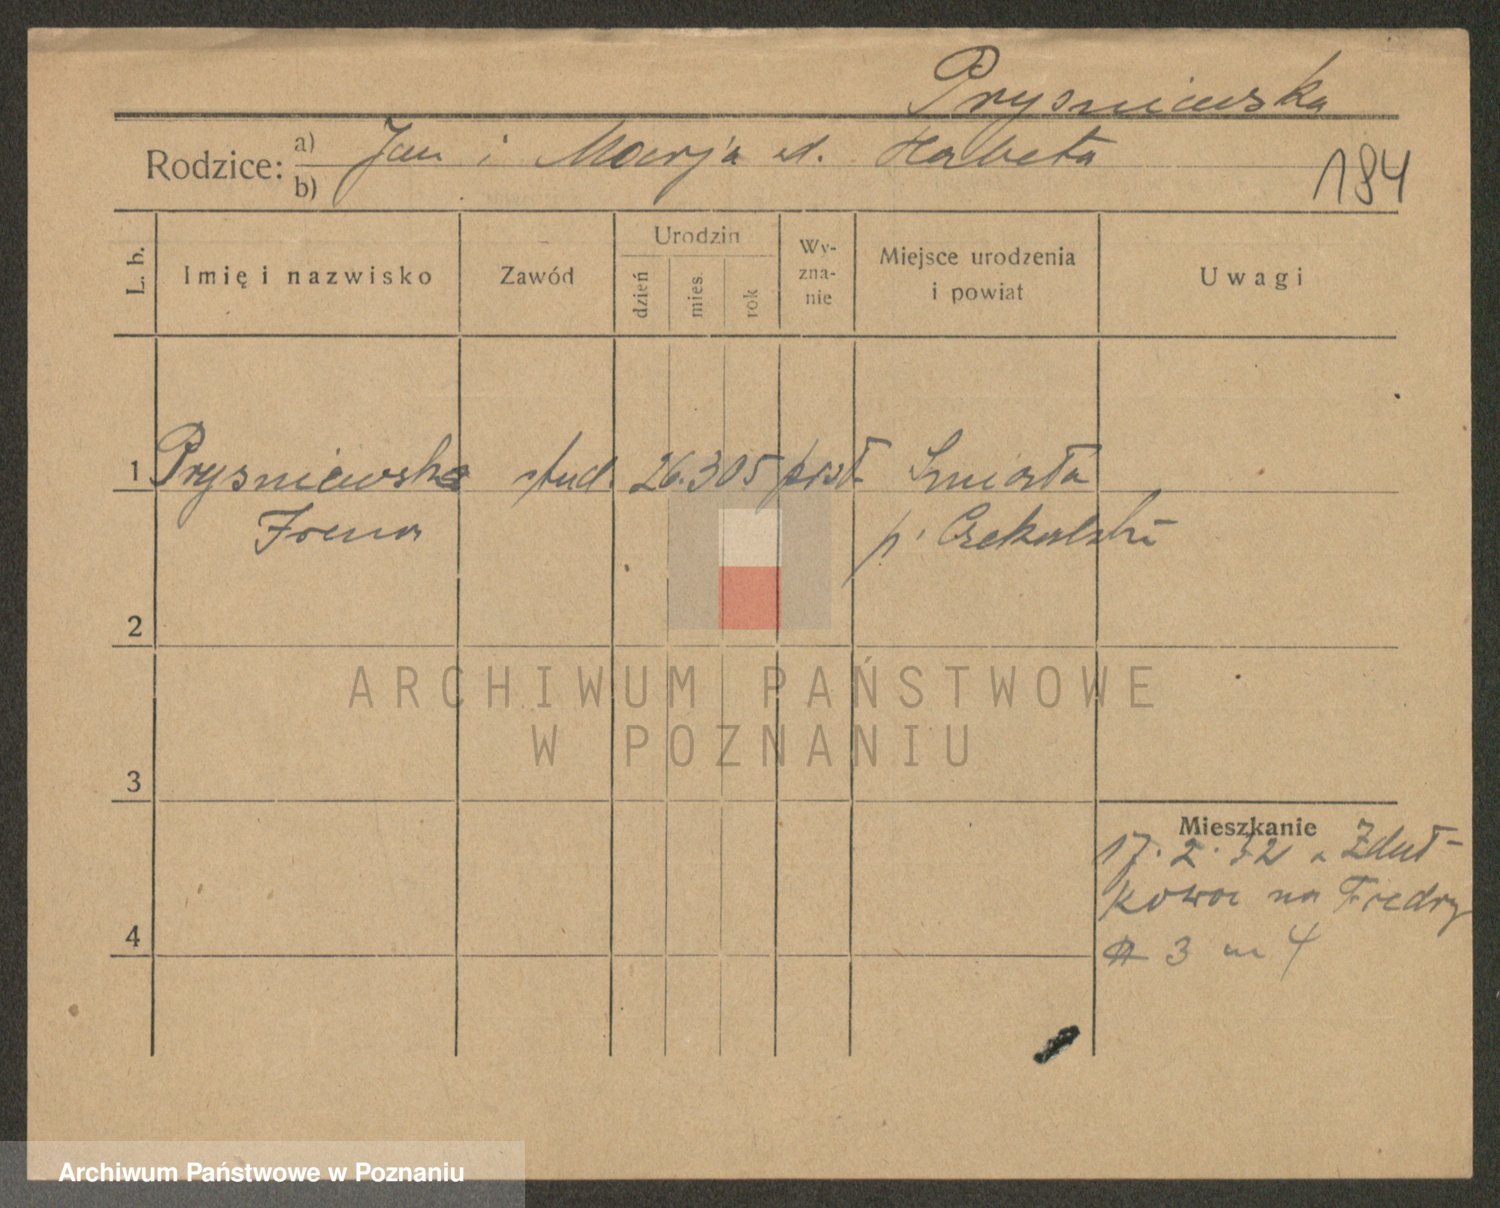 Prysniewska
Rodzice: a) Jan i Marja ur. Habeta
b)
184
L. b. Imię i nazwisko Zawód Urodzin dzień mies. rok Wy-zna-nie Miejsce urodzenia i powiat Uwagi
1 Prysniewska stud. 26.3 05 prst.
p.
2
ARCHIWUM PAŃSTWOWE
W POZNANIU
3
Mieszkanie
17. 2. 32 z Zduł-
kowa na Fredry
3 m 4
4
Archiwum Państwowe w Poznaniu